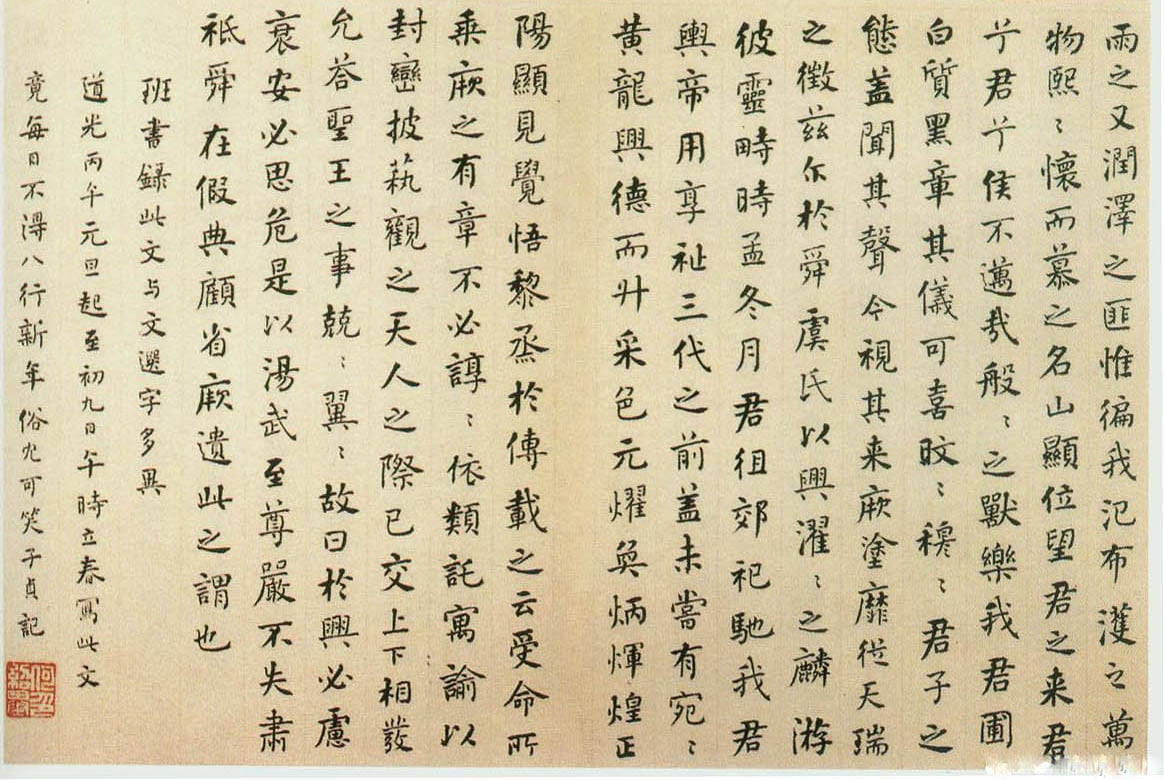 雨之又潤澤之匪惟徧我汜布濩之萬
物熙〻懷而慕之名山顯位望君之来君
兮君兮侯不邁㢤般〻之獸樂我君圃
白質黑章其儀可喜旼〻穆〻君子之
態蓋聞其聲今視其来厥塗靡從天瑞
之徵兹尒於舜虞氏以興濯〻之麟游
彼靈畤時孟冬月君徂郊祀馳我君
輿帝用享祉三代之前蓋未嘗有宛〻
黄龍興德而升采色元燿奐炳煇煌正
陽顯見覺悟黎烝於傳載之云受命所
乗厥之有章不必諄〻依類託寓諭以
封巒披蓺觀之天人之際已交上下相發
允荅聖王之事兢〻翼〻故曰於興必慮
衰安必思危是以湯武至尊嚴不失肅
祗舜在假典顧省厥遺此之謂也
班書録此文与文選字多異
道光丙午元旦起至初九日午時立春寫此文
竟每日不得八行新年俗冗可笑子貞記
何紹基